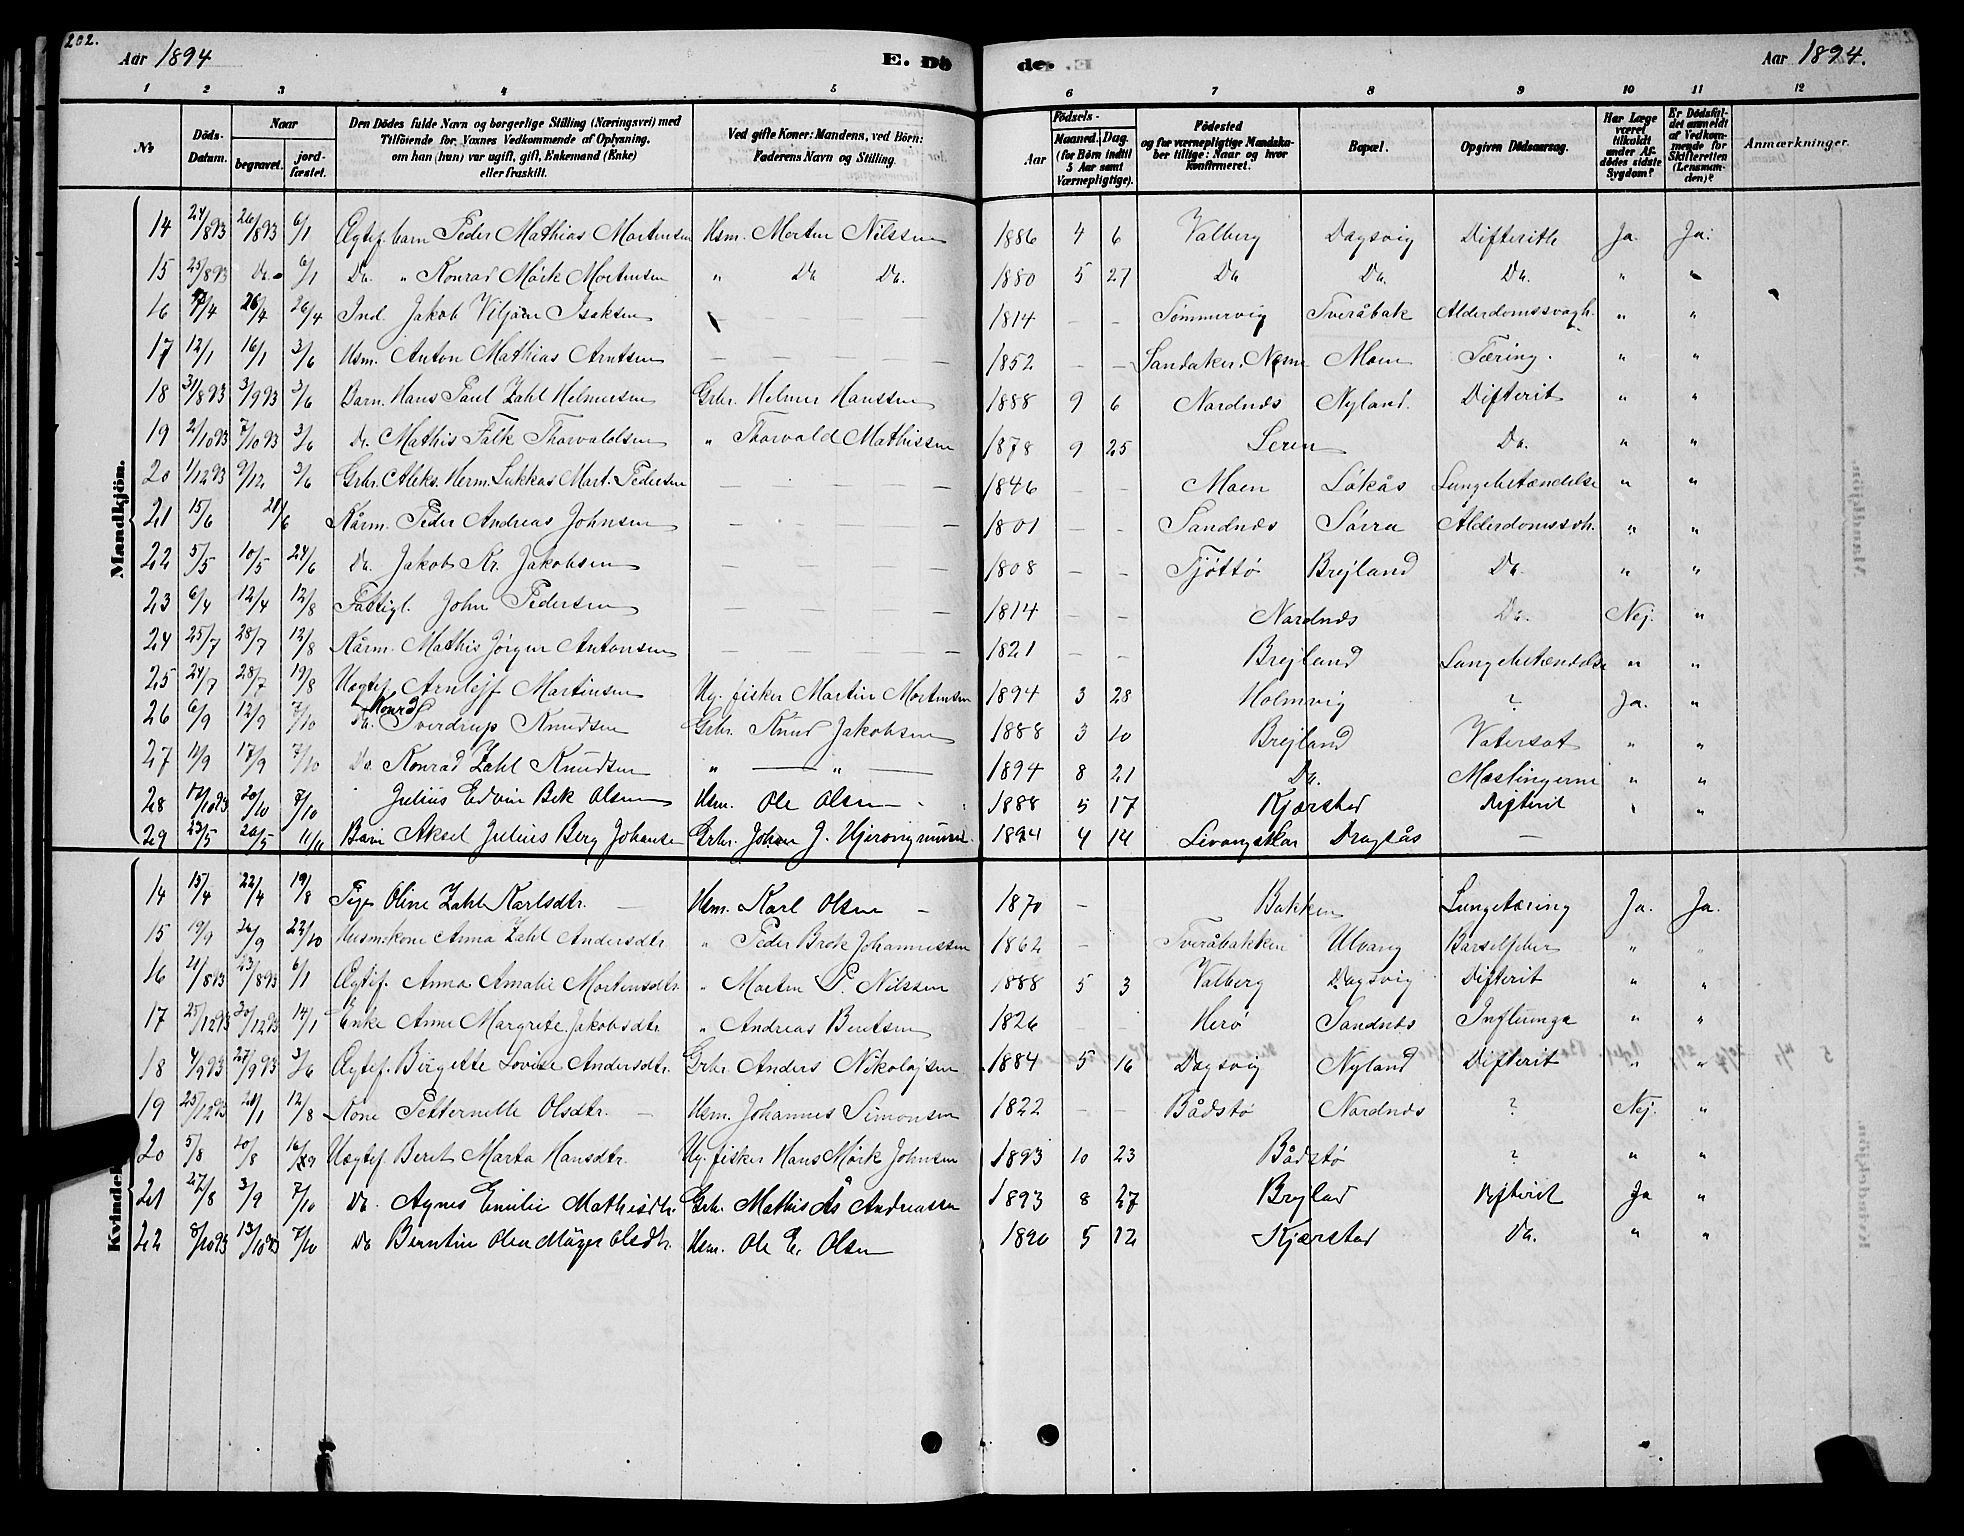 202.
Aar 1894
E. Dö
de.
Aar 1894.
1 2 3 4 5 6 7 8 9 10 11 12
No
Döds-Datum.
Naar
begravet.
jord-fæstet.
Den Dödes fulde Navn og borgerlige Stilling (Næringsvei) med
Tilföiende for Voxnes Vedkommende af Oplysning,
om han (hun) var ugift, gift, Enkemand (Enke)
eller fraskilt.
Ved gifte Koner: Mandens, ved Börn:
Faderens Navn og Stilling.
Födsels-
Aar
Maaned. Dag.
(for Börn indtil
5 Aar samt
Værnepligtige).
Födested
og for værnepligtige Mandska-
ber tillige: Naar og hvor
konfirmeret.
Bopæl.
Opgiven Dödsaarsag.
Har Læge
været
tilkaldt
under Af-
dödes sidste
Sygdom?
Er Dödsfal-
det anmeldt
af Vedkom-
mende for
Skifteretten
(Lensman-
den)?
Anmærkninger.
Mandkjön.
14 24/8 93 26/8 93 6/1 Ægtef. barn Peder Mathias Mortensen Hsm. Morten Nilssen 1886 4 6 Valberg Dagsvig Difterith Ja. Ja.
15 25/8 93 Do. 6/1 Do. " Konrad Mörk Mortensen " Do Do. 1880 5 27 Do Do. Do. " "
16 /4 26/4 26/4 Ind. Jakob Viljam Isaksen — — — 1814 — — Tömmervig Tveråbak Alderdomssvagh. " "
17 12/1 16/1 3/6 Hsm. Anton Mathias Arntsen — — — 1852 — — Sandaker, Nesne Moen Tæring. " "
18 31/8 93 3/9 93 3/6 Barn Hans Paul Zahl Helmersen Grbr. Helmer Hanssen 1888 9 6 Nordnæs Nyland. Difterit " "
19 2/10 93 7/10 93 3/6 Do. Mathis Falk Thorvaldsen " Thorvald Mathissen 1878 9 25 Leren Do. " "
20 1/12 93 9/12 3/6 Grbr. Aleks. Herm. Lukkas Mart. Pedersen — — — 1846 — — Moen Løkås Lungebetændelse " "
21 15/6 21/6 Kårm. Peder Andreas Johnsen — — — 1801 — — Sandnæs Sørra Alderdomssvh. " "
22 5/5 10/5 24/6 Do. Jakob Kr. Jakobsen — — — 1808 — — Tjøttø Brejland Do. " "
23 6/4 12/4 12/8 Fattigl. John Pedersen — — — 1814 — — Nordnæs Do. Nej. "
24 25/7 28/7 12/8 Kårm. Mathis Jörgen Antonsen — — — 1821 — — Brejland Lungebetændelse " "
25 24/7 28/7 19/8 Uægtef. Arnlejf Martinsen Ug. fisker Martin Mortensen 1894 3 28 Holmvig ? Ja. "
26 6/9 12/9 7/10 Do. Konrad Sverdrup Knudsen Grbr. Knud Jakobsen 1888 3 10 Brejland Vatersot " "
27 11/9 17/9 7/10 Do. Konrad Zahl Knudsen " — " — 1894 8 21 Do. Mæslingerne " "
28 /10 93 20/10 7/10 Julius Edvin Bek Olsen Hsm. Ole Olsen 1888 5 17 Kjærstad Difterit " "
29 23/5 /5 11/11 Barn Aksel Julius Berg Johansen Grbr. Johan J. 1894 4 14 Dragsås —
Kvindek
14 15/4 22/4 19/8 Pige Oline Zahl Karlsdtr. — Hsm. Karl Olsen — 1870 — Bakken Lungetæring Ja. Ja.
15 19/9 26/9 22/10 Husm.kone Anna Zahl Andersdtr. " Peder Brok Johannessen 1862 — Tveråbakken Ulvang Barselfeber " "
16 21/8 93 23/8 93 6/1 Ægtef. Anna Amalie Mortensdtr. " Morten P. Nilssen 1888 5 3 Valberg Dagsvig Difterit " "
17 25/12 93 30/12 93 14/1 Enke Anne Margrete Jakobsdtr. " Andreas Bentsen 1826 Herø Sandnæs Influenza " "
18 4/9 93 27/9 93 3/6 Ægtef. Birgette Lovise Andersdtr. Grbr. Anders Nikolajsen 1884 5 16 Dagsvig Nyland Difterit " "
19 25/12 93 /1 12/8 Kone Petternelle Olsdtr. — Hsm. Johannes Simonsen 1822 — — Bådstø Nordnæs ? Nej. "
20 5/8 10/8 16/9 Uægtef. Beret Marta Hansdtr. Ug. fisker Hans Mörk Johnsen 1893 10 23 Bådstø ? " "
21 27/8 3/9 7/10 Do. Agnes Emilie Mathisdtr. Grbr. Mathis Ås Andreassen 1893 8 27 Brejland Difterit Ja "
22 8/10 93 13/10 93 7/10 Do Berntin Olea Mäyer Olsdtr. Hsm. Ole E. Olsen 1890 5 12 Kjærstad Do. " "